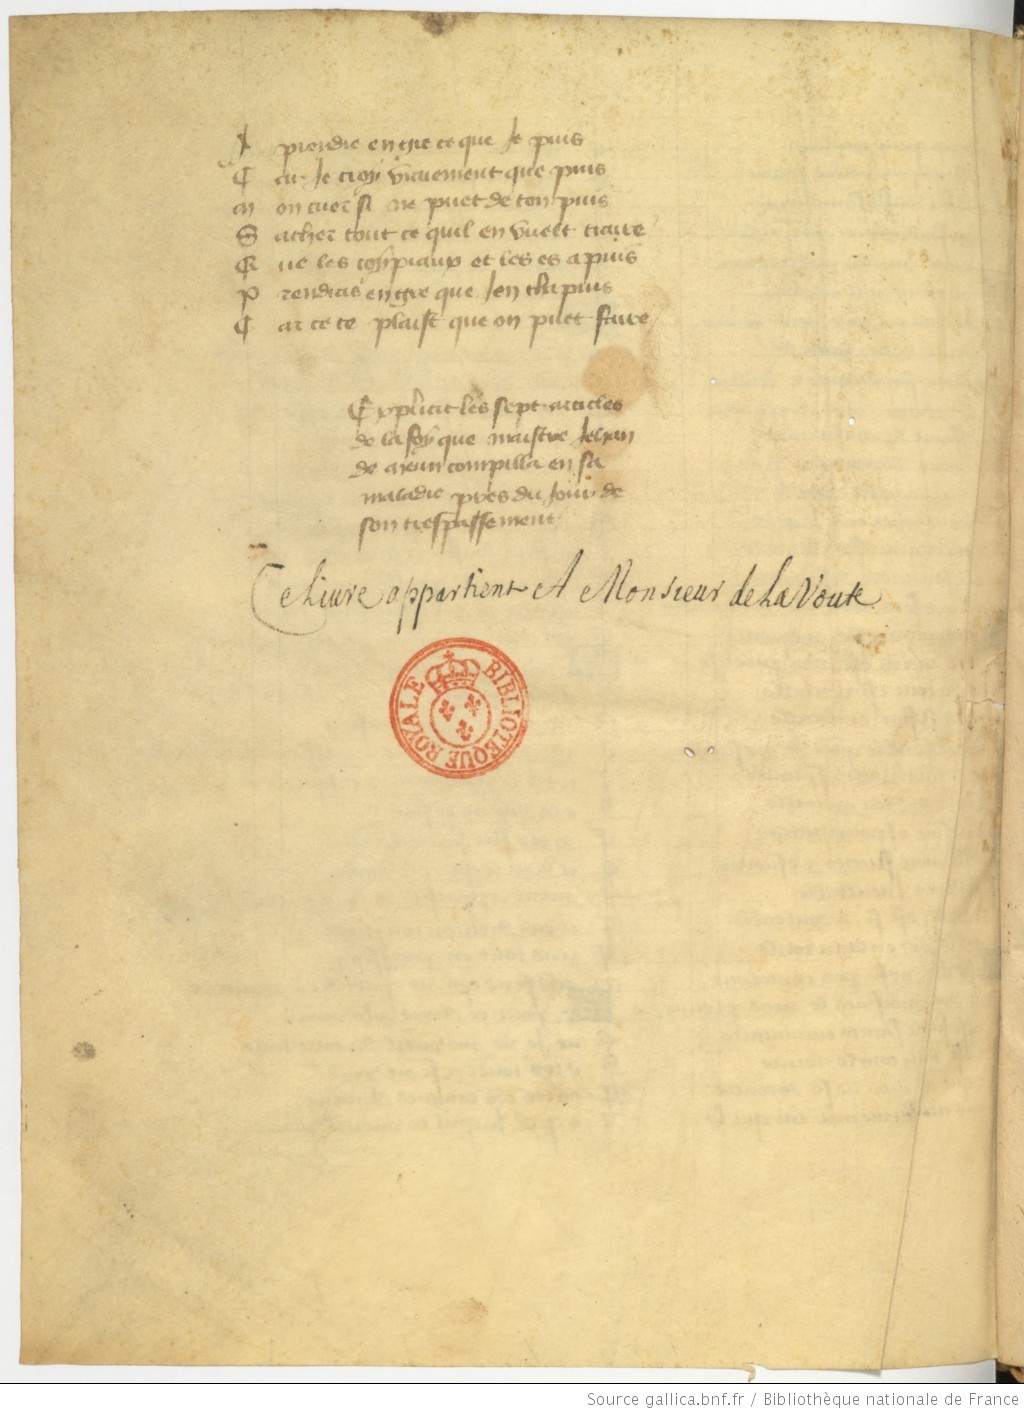 A prendre en gre ce que Je puis
Car Je croy vraiement que puis
m on cuer si ne puet de ton puis
S acher tout ce quil en vuelt traire
Q ue les
et les es apuis
P rendras en gre que Jen
C ar ce te plaist que on puet faire
Explicit les sept articles
de la foy que maistre Jehan
de meun compilla en sa
maladie pres du Jour de
son trespassement
Ce Liure appartient A Monsieur de La Voute
BIBLIOTEQUE ROYALE
Source gallica.bnf.fr / Bibliothèque nationale de France